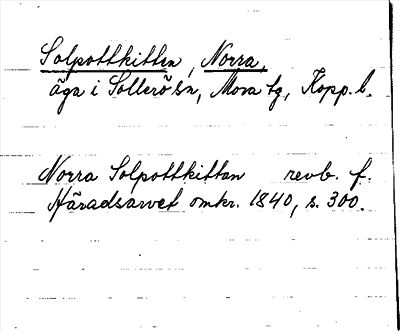 Solpottkitten, Norra,
äga i Sollerö sn, Mora tg, Kopp. l.
Norra Solpottkittan revb. f.
Häradsarvet omkr. 1840, s. 300.